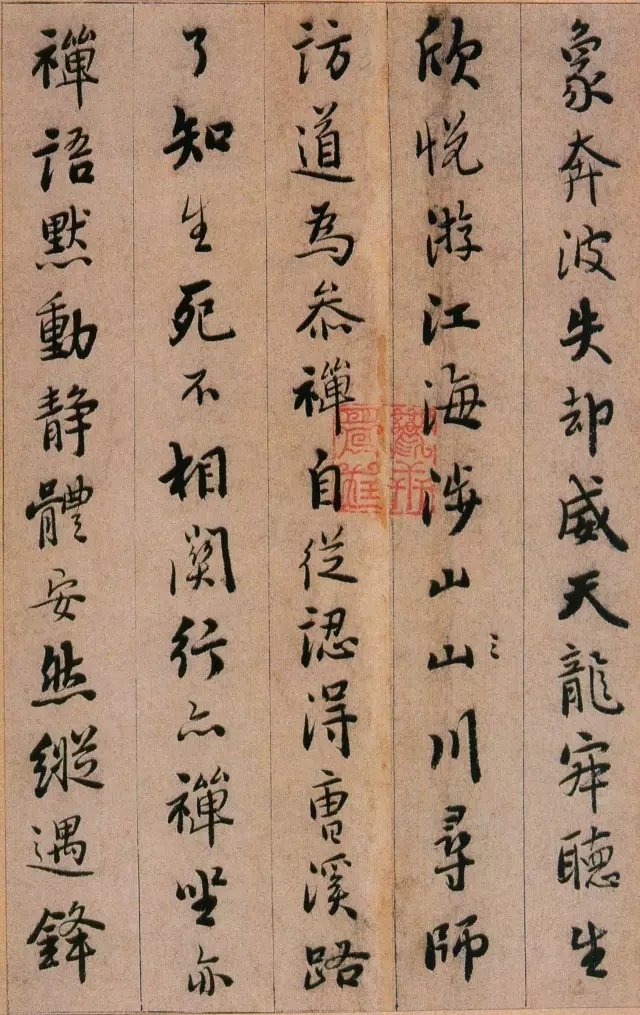 象奔波失却威天龍寂聽生
欣悅游江海涉山山川尋師
訪道為叅禪自從認得曹溪路
了知生死不相關行亦禪坐亦
禪語默動静體安然縱遇鋒